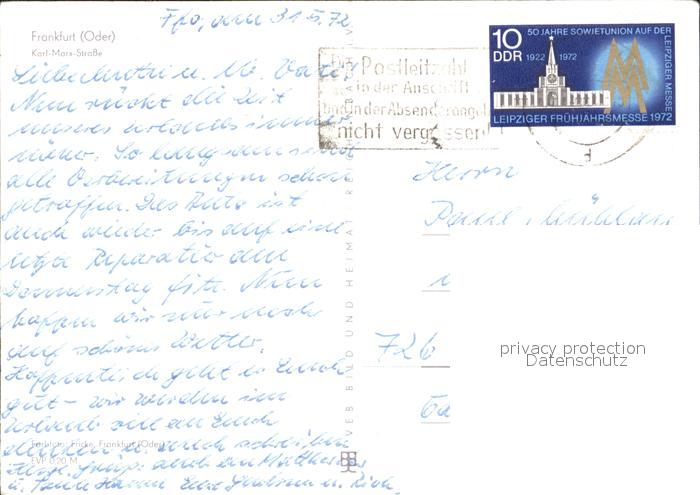 Ffo, den 31.5.72
Frankfurt (Oder)
Karl-Marx-Straße
Nun rückt die Zeit
unseres Urlaubs immer
näher. So langsam sind
alle Vorbereitungen schon
getroffen. Das Auto ist
auch wieder bis auf eine
letzte Reparatur am
Donnerstag fit. Nun
hoffen wir nur noch
auf schönes Wetter.
Hoffentlich geht es Euch
gut - wir werden im
Urlaub viel an Euch
denken u. auch schreiben
Farbfoto: Fricke, Frankfurt (Oder)
EVP 0,20 M
VEB BILD UND HEIMAT
Postleitzahl
in der Anschrift
und in der Absenderangabe
nicht vergessen
10
DDR
50 JAHRE SOWJETUNION AUF DER LEIPZIGER MESSE
1922 1972
LEIPZIGER FRÜHJAHRSMESSE 1972
Herrn
726
privacy protection
Datenschutz